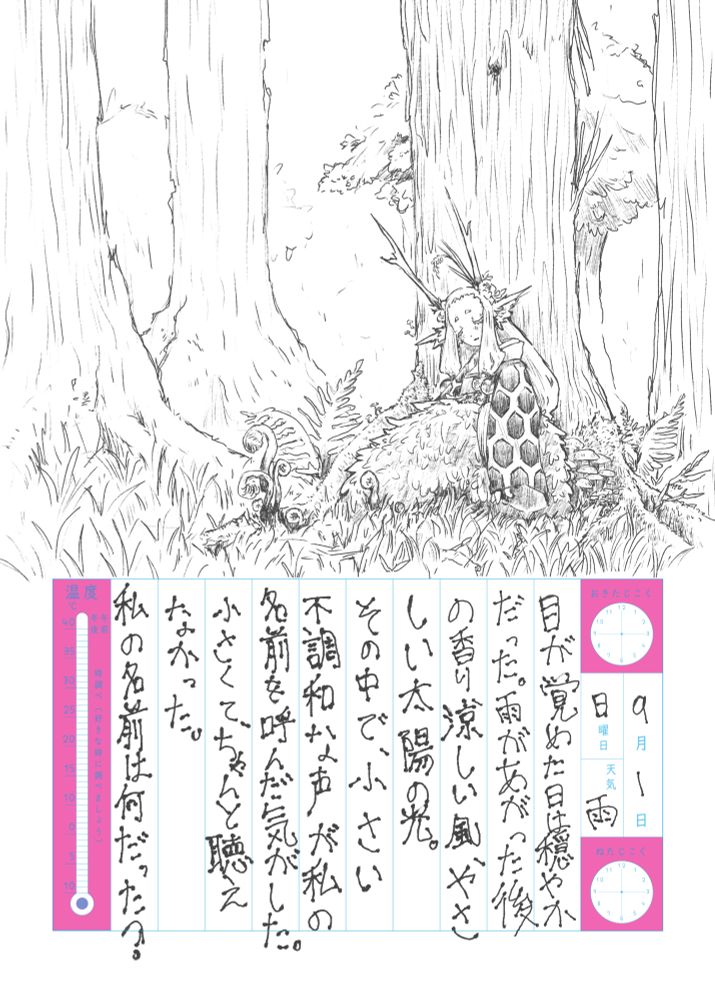 おきたじこく
9月1日
日曜日
天気
雨
ねたじこく
目が覚めた日は穏やか
だった。雨があがった後
の香り涼しい風、やさ
しい太陽の光。
その中で、小さい
不調和な声が私の
名前を呼んだ気がした。
小さくて、ちゃんと聴え
なかった。
私の名前は何だったっ?。
温度
℃
午前
午後
時調べ(好きな時に調べましょう)
40
35
30
25
20
15
10
5
0
5
10